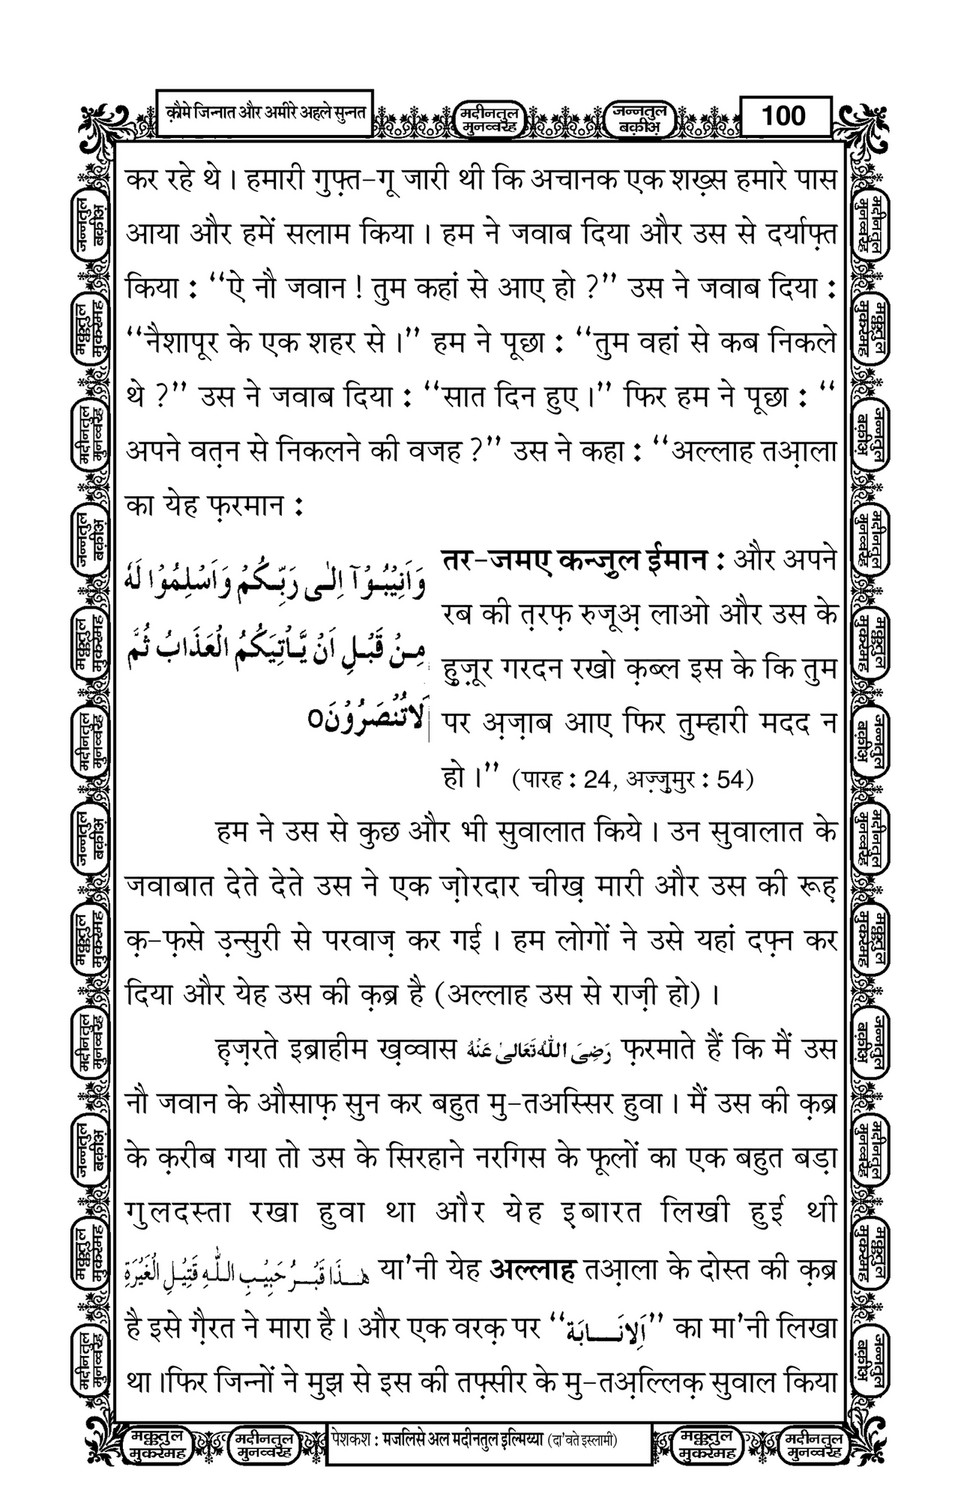 क़ौमे जिन्नात और अमीरे अहले सुन्नत
मदीनतुल मुनव्वरह
जन्नतुल बक़ीअ़
100
कर रहे थे । हमारी गुफ़्त-गू जारी थी कि अचानक एक शख़्स हमारे पास
आया और हमें सलाम किया । हम ने जवाब दिया और उस से दर्याफ़्त
किया : ‘‘ऐ नौ जवान ! तुम कहां से आए हो ?’’ उस ने जवाब दिया :
‘‘नैशापूर के एक शहर से ।’’ हम ने पूछा : ‘‘तुम वहां से कब निकले
थे ?’’ उस ने जवाब दिया : ‘‘सात दिन हुए ।’’ फिर हम ने पूछा : ‘‘
अपने वत़न से निकलने की वजह ?’’ उस ने कहा : ‘‘अल्लाह तआ़ला
का येह फ़रमान :
وَاَنِيْبُوْۤا اِلٰى رَبِّكُمْ وَاَسْلِمُوْا لَهٗ
مِنْ قَبْلِ اَنْ يَّاْتِيَكُمُ الْعَذَابُ ثُمَّ
لَا تُنْصَرُوْنَ○
तर-जमए कन्ज़ुल ईमान : और अपने
रब की त़रफ़ रुजूअ़ लाओ और उस के
हुज़ूर गरदन रखो क़ब्ल इस के कि तुम
पर अ़ज़ाब आए फिर तुम्हारी मदद न
हो ।’’ (पारह : 24, अज़्ज़ुमुर : 54)
हम ने उस से कुछ और भी सुवालात किये । उन सुवालात के
जवाबात देते देते उस ने एक ज़ोरदार चीख़ मारी और उस की रूह़
क़-फ़से उ़न्सुरी से परवाज़ कर गई । हम लोगों ने उसे यहां दफ़्न कर
दिया और येह उस की क़ब्र है (अल्लाह उस से राज़ी हो) ।
ह़ज़रते इब्राहीम ख़व्वास رَضِىَ اللهُ تَعَالٰى عَنْهُ फ़रमाते हैं कि मैं उस
नौ जवान के औसाफ़ सुन कर बहुत मु-तअस्सिर हुवा । मैं उस की क़ब्र
के क़रीब गया तो उस के सिरहाने नरगिस के फूलों का एक बहुत बड़ा
गुलदस्ता रखा हुवा था और येह इबारत लिखी हुई थी
هٰذَا قَبْرُ حَبِيْبِ اللّٰهِ قَتِيْلِ الْغَيْرَةِ या’नी येह अल्लाह तआ़ला के दोस्त की क़ब्र
है इसे ग़ैरत ने मारा है । और एक वरक़ पर ‘‘اَلْاِنَابَة’’ का मा’नी लिखा
था ।फिर जिन्नों ने मुझ से इस की तफ़्सीर के मु-तअ़ल्लिक़ सुवाल किया
मक्कतुल मुकर्रमह
मदीनतुल मुनव्वरह
पेशकश : मजलिसे अल मदीनतुल इल्मिय्या (दा’वते इस्लामी)
मक्कतुल मुकर्रमह
मदीनतुल मुनव्वरह